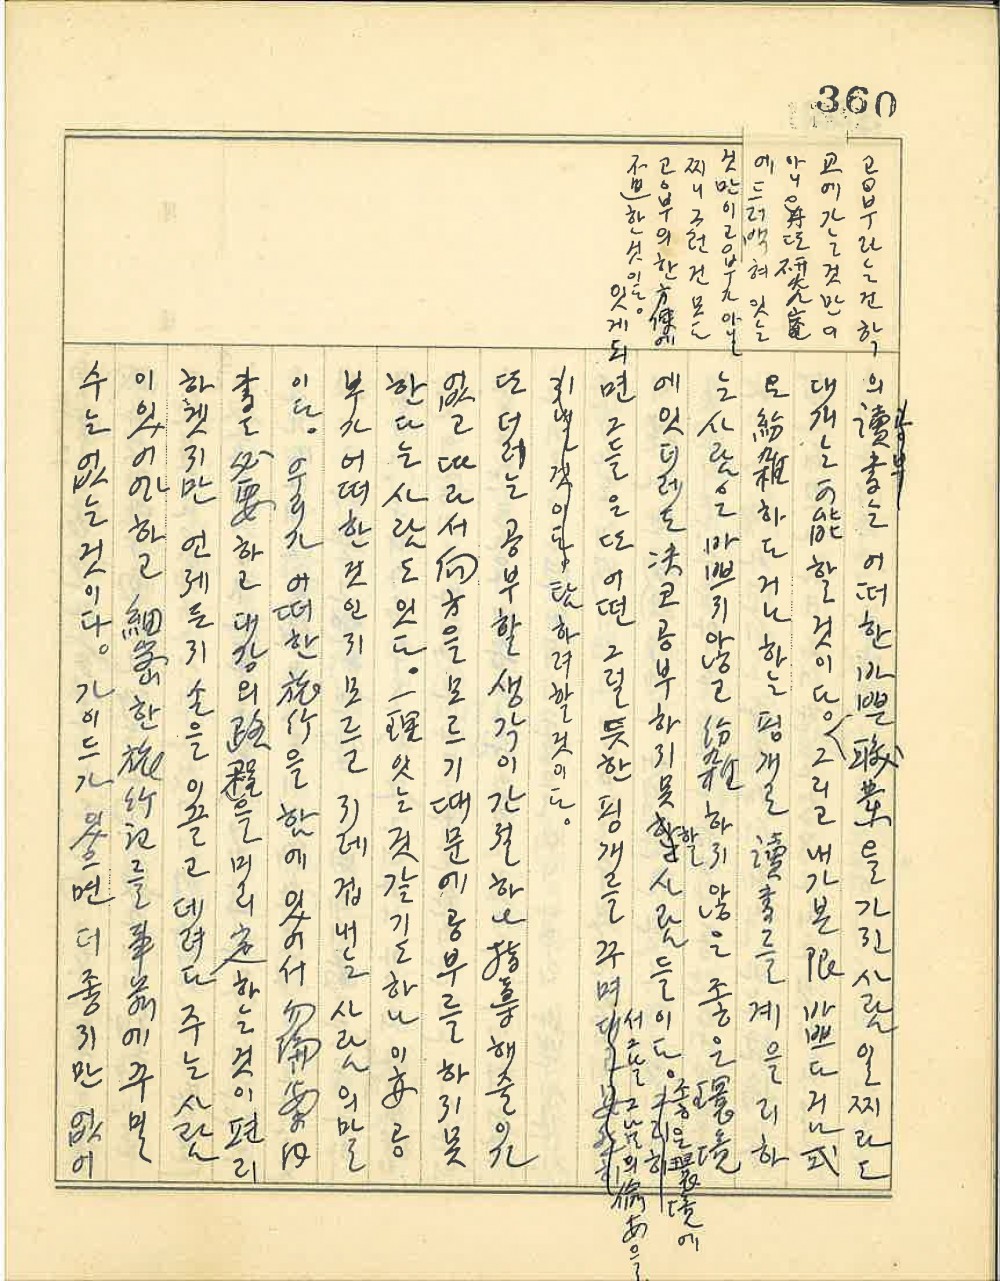 360
공부라는건 학
교에 가는것만이
아니오 또 硏究室
에 드러백혀 잇는
것만이 공부가 아닐
찌니 그런건 모도
공부의 한 方便에
不過한것이다.
의 讀書는 어떠한 바쁜 職業을 가진 사람일찌라도
공부
대개는 可能할 것이다. 그리고 내가 본 限 바쁘다거니
로 紛雜하다거니 하는 핑개로 讀書를 게을리하
는 사람은 바쁘지 않고 紛雜하지 않은 좋은 環境
에 잇더래도 决코 공부하지 못할 사람들이다.
좋은 環境에
잇게되
면 그들은 또 어떤 그럴 듯한 핑개를 꾸며
서 그날 그날의 偸安으로
하려할 것이다.
또 더러는 공부할 생각이 간절하나 指導해줄이가
없고 따라서 向方을 모르기 때문에 공부를 하지 못
한다는 사람도 잇다. 一理 잇는것 같기도 하나 이亦 공
부가 어떠한 것인지 모르고 지레 겁내는 사람의 말
이다. 우리가 어떠한 旅行을 함에 있어서 勿論 案內
書도 必要하고 대강의 路程을 미리 定하는것이 편리
하겟지만 언제든지 손을 이끌고 데려다 주는 사람
이 있어야 하고 細密한 旅行記를 事前에 꾸밀
수는 없는것이다. 가이드가 있으면 더 좋지만 없어